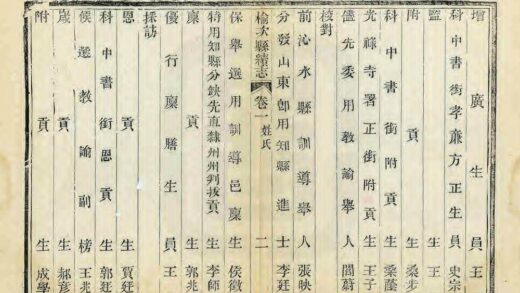 增廣生員王
科中書銜孝廉方正生員史宗
監生王
附貢生桑步
科中書銜附貢生桑蔭
光祿寺署正銜附貢生王子
儘先委用教諭舉人閻蔚
校對
前沁水縣訓導舉人張映
分發山東卽用知縣進士李廷
榆次縣續志 卷一 姓氏 二
保舉選用訓導邑廩生侯徵
特用知縣分缺先直隸州州判拔貢生李師
廩貢生郭兆
優行廩膳生員王
採訪
恩貢生賈廷
科中書銜恩貢生郭廷
候選教諭副榜王兆
歲貢生郝彥
附貢生成學